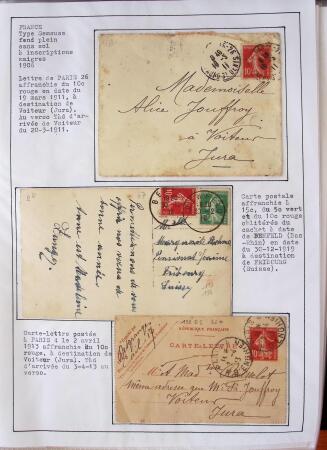 FRANCE
Type Semeuse
fond plein
sans sol
à inscriptions
maigres
1906
Lettre de PARIS 26
affranchie du 10c
rouge en date du
19 mars 1911, à
destination de
Voiteur (Jura).
Au verso TàD d'ar-
rivée de Voiteur
du 20-3-1911.
Mademoiselle
Alice Jouffroy
à Voiteur
Jura
Carte postale
affranchie à
15c, du 5c vert
et du 10c rouge
oblitérés du
cachet à date
de BENFELD (Bas
-Rhin) en date du
30-12-1919
à destination
de FRIBOURG
(Suisse).
Permettez de vous
offrir nos vœux de
bonne année
Pensionnat Jeanne
Fribourg
Suisse
Carte-lettre postée
à PARIS 4 le 2 avril
1913 affranchie du 10c
rouge, à destination de
Voiteur (Jura). TàD
d'arrivée du 3-4-13 au
verso.
RÉPUBLIQUE FRANÇAISE
CARTE-LETTRE
même adresse que Mr. Jouffroy
Voiteur
Jura